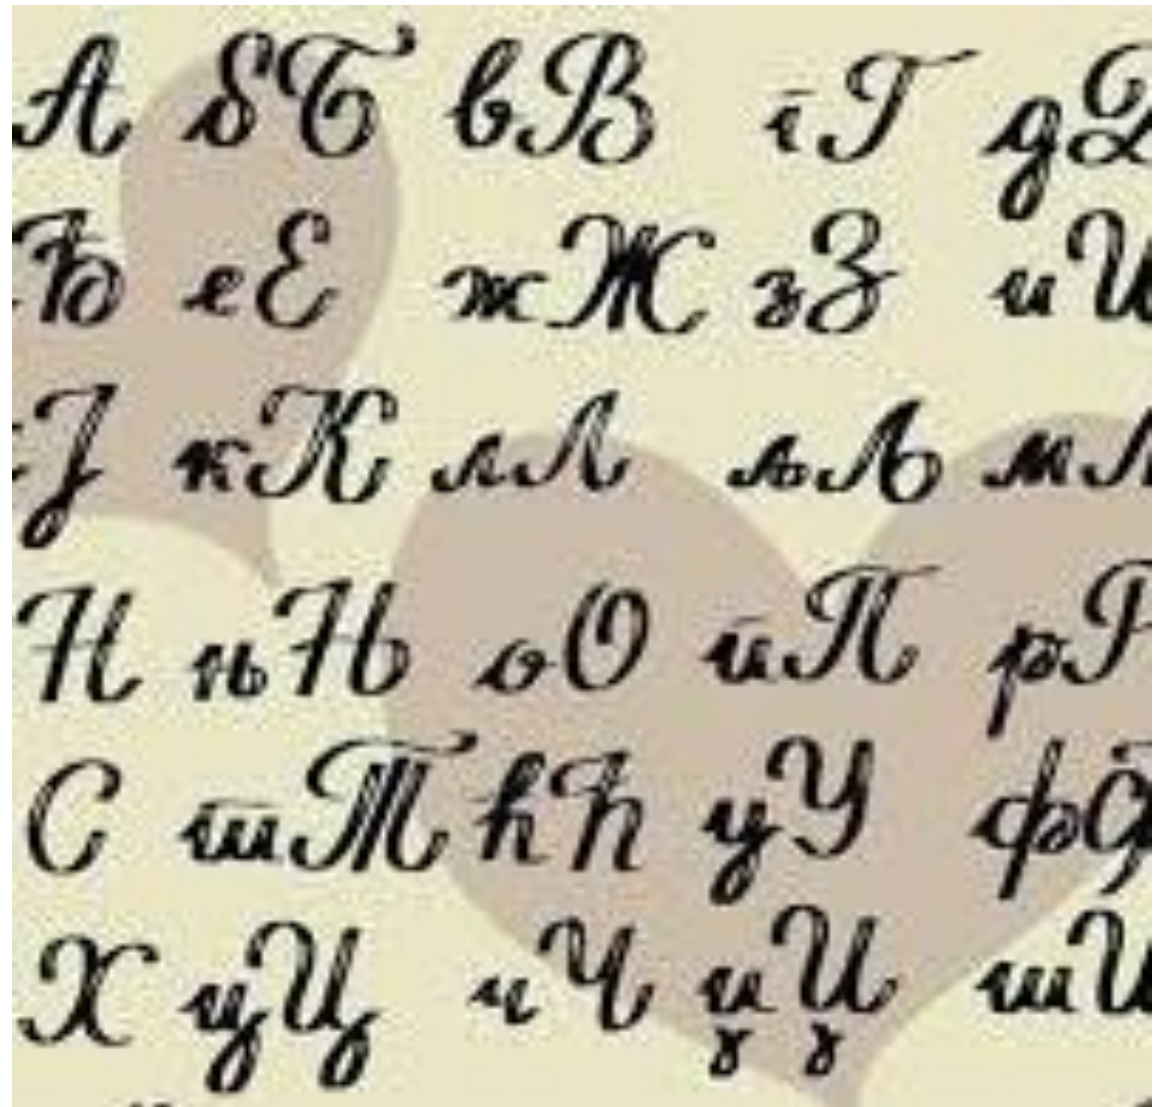 А бБ вВ гГ дД
Ђ еЕ жЖ зЗ иИ
Ј кК лЛ љЉ мМ
Н њЊ оО пП рР
С тТ ћЋ уУ фФ
Х цЦ чЧ џЏ шШ